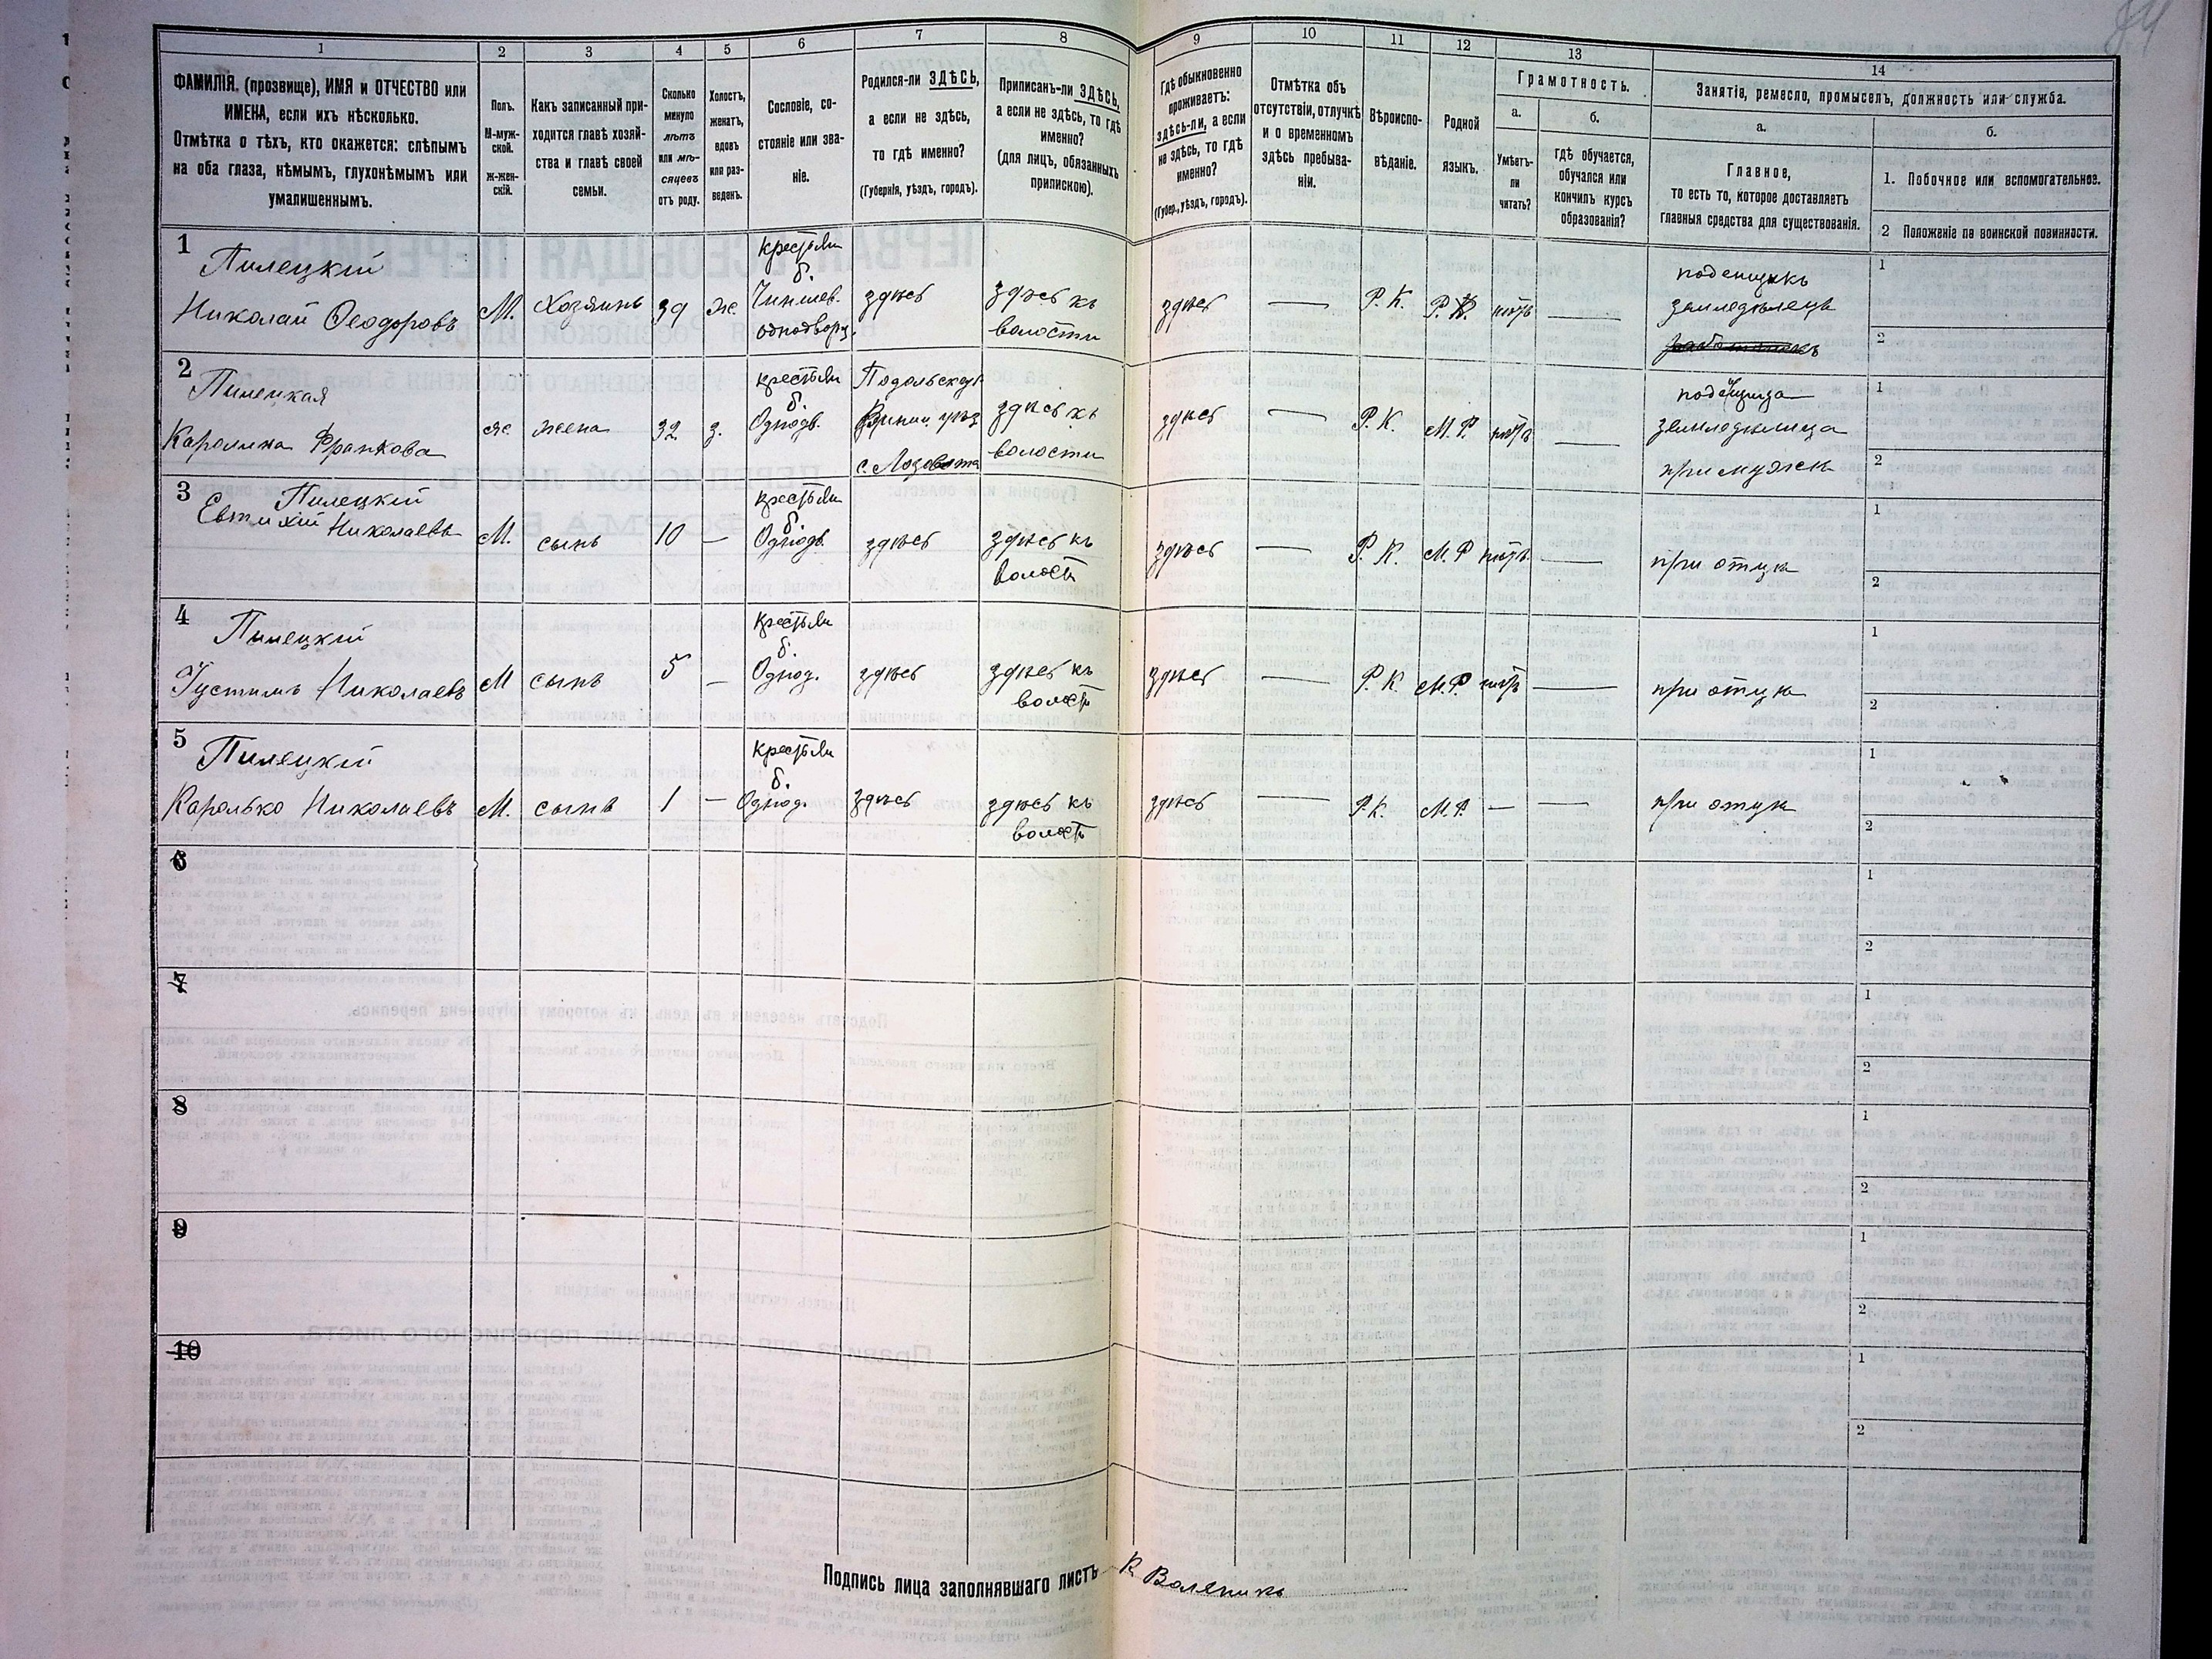 1
2
3
4
5
6
7
8
ФАМИЛІЯ. (прозвище), ИМЯ и ОТЧЕСТВО или
ИМЕНА, если ихъ нѣсколько.
Отмѣтка о тѣхъ, кто окажется: слѣпымъ
на оба глаза, нѣмымъ, глухонѣмымъ или
умалишеннымъ.
Полъ.
М-муж-
ской.
ж-жен-
скій.
Какъ записанный при-
ходится главѣ хозяй-
ства и главѣ своей
семьи.
Сколько
минуло
лѣтъ
или мѣ-
сяцевъ
отъ роду.
Холостъ,
женатъ,
вдовъ
или раз-
веденъ.
Сословіе, со-
стояніе или зва-
ніе.
Родился-ли ЗДѢСЬ,
а если не здѣсь,
то гдѣ именно?
(Губернія, уѣздъ, городъ).
Приписанъ-ли ЗДѢСЬ,
а если не здѣсь, то гдѣ
именно?
(для лицъ, обязанныхъ
припискою).
9
10
11
12
13
14
Гдѣ обыкновенно
проживаетъ:
здѣсь-ли, а если
не здѣсь, то гдѣ
именно?
(Губер., уѣздъ, городъ).
Отмѣтка объ
отсутствіи, отлучкѣ
и о временномъ
здѣсь пребыва-
ніи.
Вѣроиспо-
вѣданіе.
Родной
языкъ.
Грамотность.
а.
б.
Умѣетъ-
ли
читать?
Гдѣ обучается,
обучался или
кончилъ курсъ
образованія?
Занятіе, ремесло, промыселъ, должность или служба.
а.
б.
Главное,
то есть то, которое доставляетъ
главныя средства для существованія.
1. Побочное или вспомогательное.
2 Положеніе по воинской повинности.
1
Пилецкій
Николай Ѳеодоровъ
М.
Хозяинъ
39
ж.
крестьян
б.
Чиншев.
однодворц.
здѣсь
здѣсь къ
волости
здѣсь
—
Р. К.
нѣтъ
—
поденщикъ
земледѣлецъ
1
2
2
Пилецкая
Каролина Франкова
ж.
жена
32
з.
крестьян
б.
Однодв.
Подольской
с. Лозовата
здѣсь къ
волости
здѣсь
—
Р. К.
М. Р.
нѣтъ
—
поденщица
земледѣлица
при мужѣ
1
2
3
Пилецкій
Евтихій Николаевъ
М.
сынъ
10
—
крестьян
б.
Однодв.
здѣсь
здѣсь къ
волост
здѣсь
—
Р. К.
М. Р
нѣтъ
—
при отцѣ
1
2
4
Пилецкій
Густинъ Николаевъ
М
сынъ
5
—
крестьян
б.
Однод.
здѣсь
здѣсь къ
волост
здѣсь
—
Р. К.
М. Р
нѣтъ
—
при отцѣ
1
2
5
Пилецкій
Каролько Николаевъ
М.
сынъ
1
—
крестьян
б.
Однод.
здѣсь
здѣсь къ
волост
здѣсь
—
Р. К.
М. Р.
—
—
при отцѣ
1
2
6
1
2
7
1
2
8
1
2
9
1
2
10
1
2
Подпись лица заполнявшаго листъ